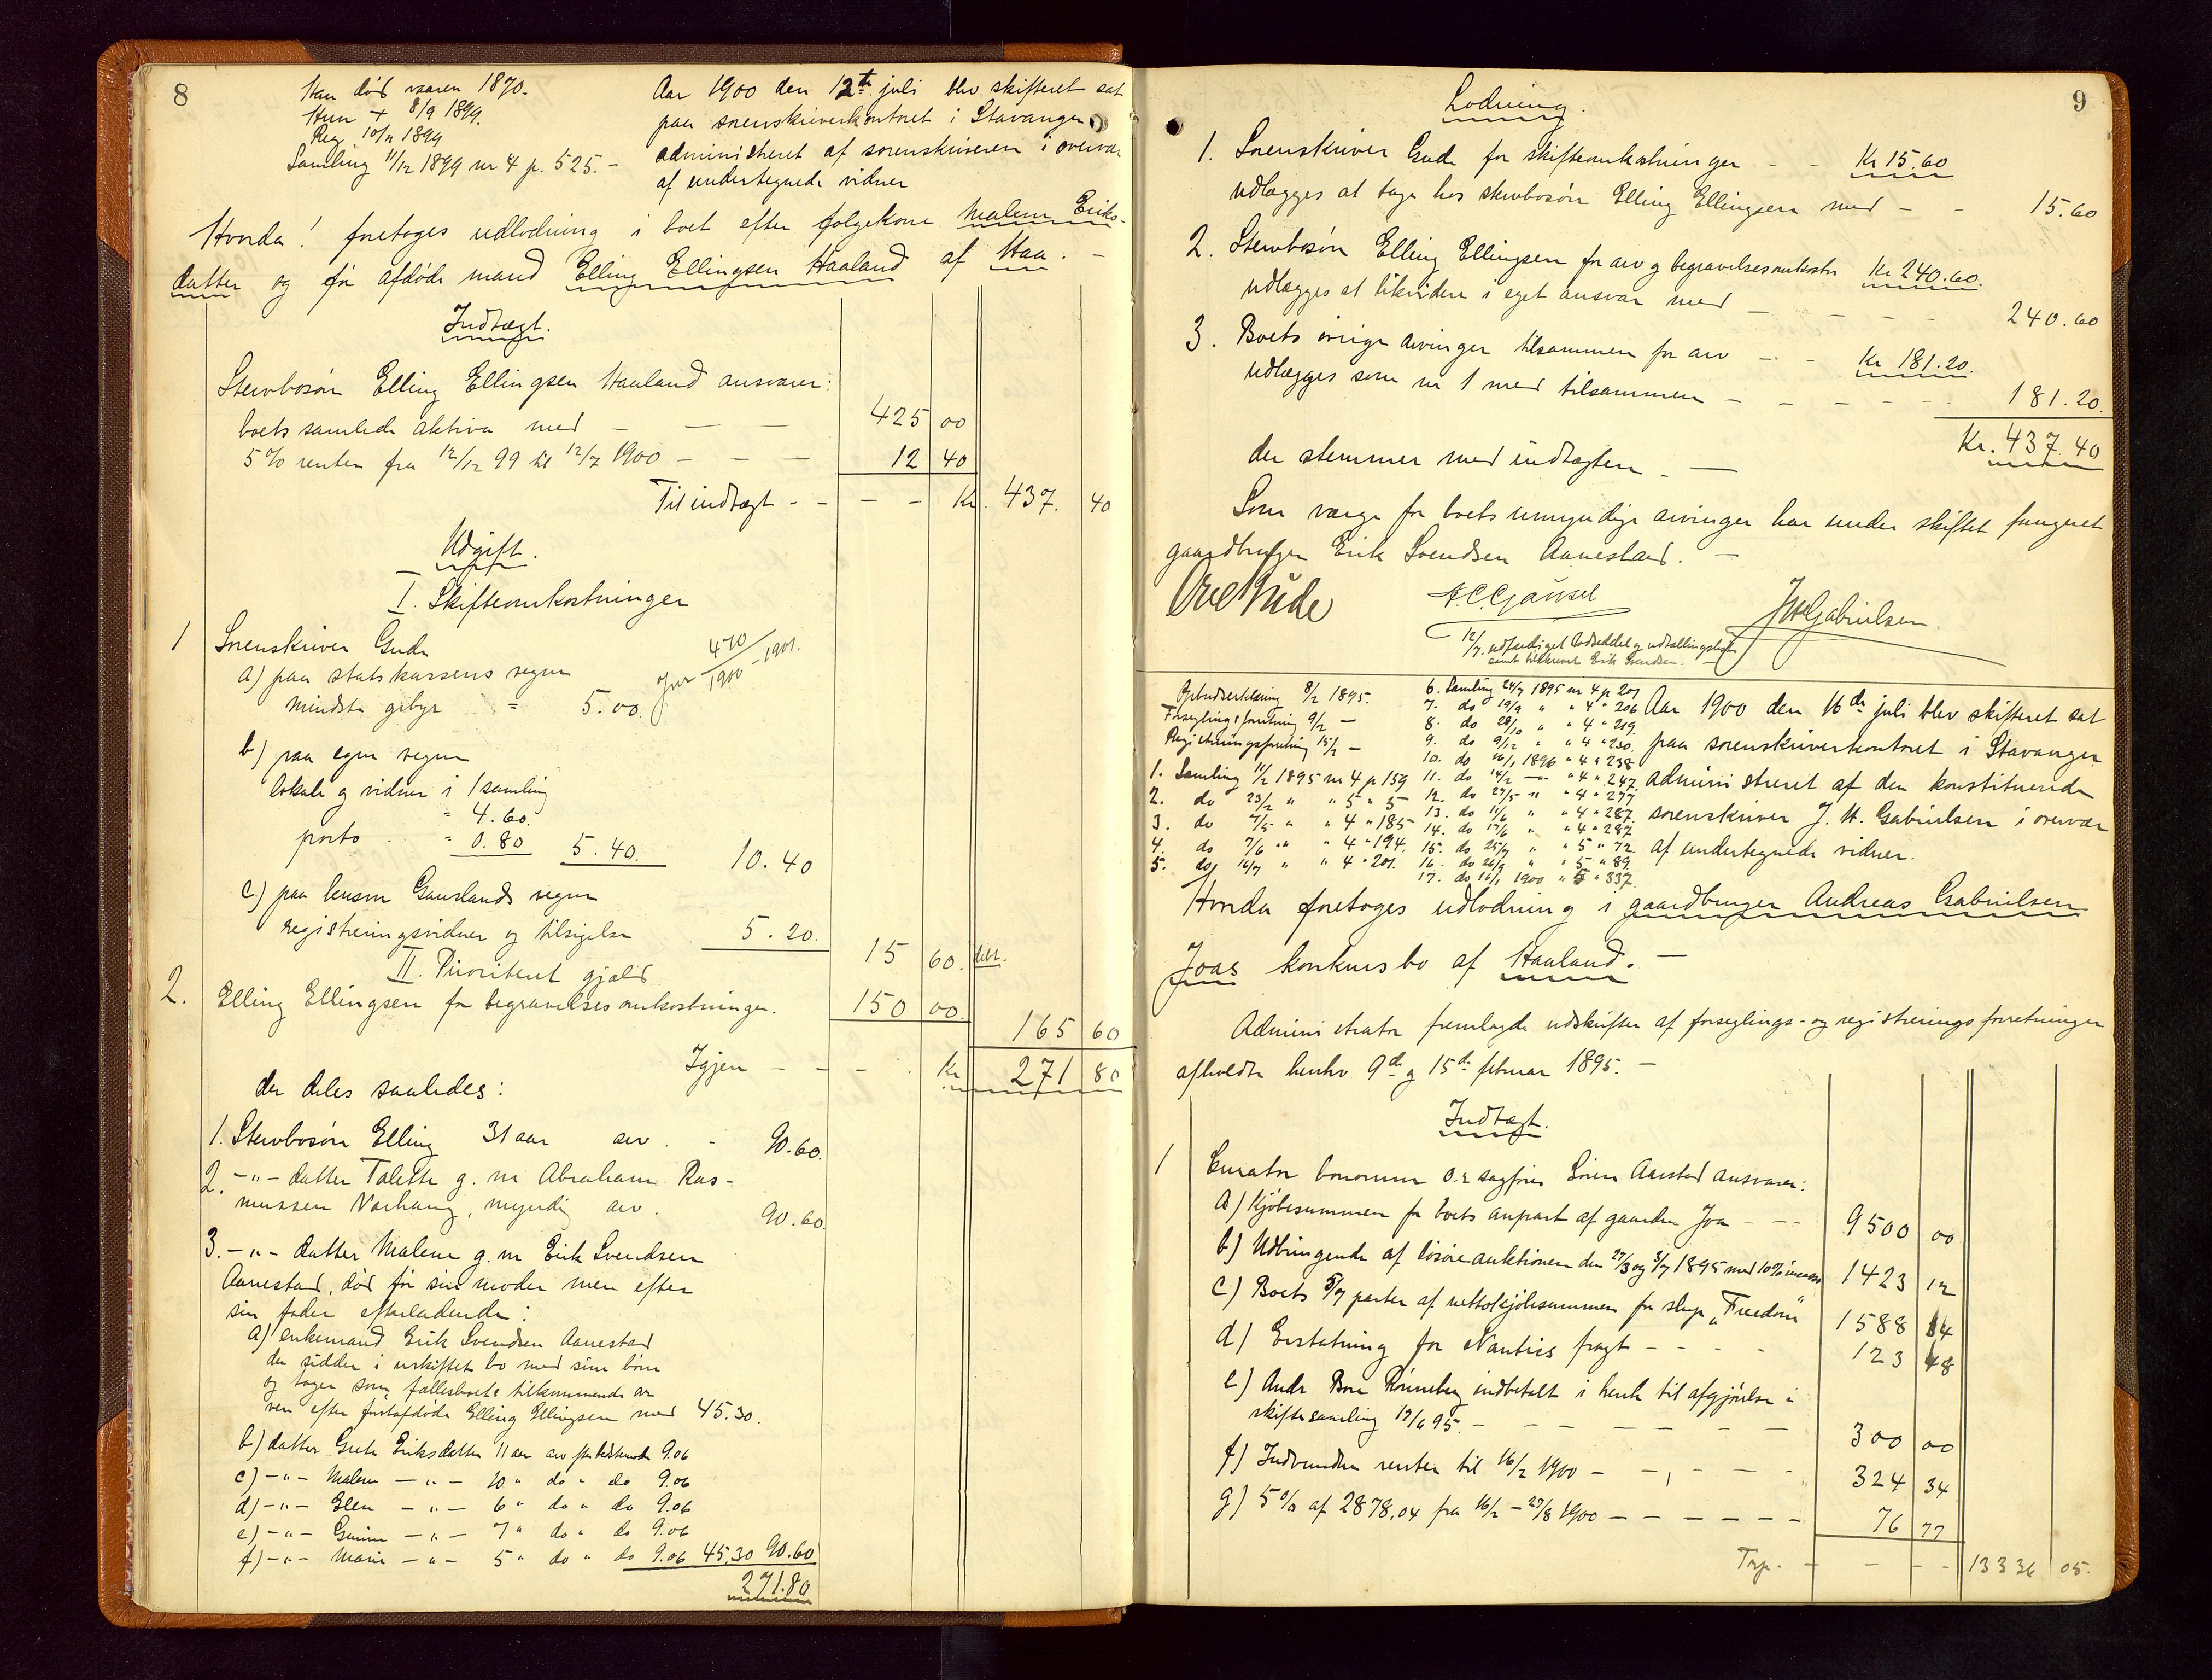 8
Han død vaaren 1870.
Hun + 8/9 1899.
Reg 10/11 1899
Samling 11/12 1899 nr 4 p. 525. -
Aar 1900 den 12te juli blev skifteret sat
paa sorenskriverkontoret i Stavanger
administreret af sorenskriveren i overvær
af undertegnede vidner
Hvorda! foretoges udlodning i boet efter følgekone Malene Eriks-
datter og før afdøde mand Elling Ellingsen Haaland af Haa. -
Indtægt.
Stervbosøn Elling Ellingsen Haaland ansvarer:
boets samlede aktiva med - - - 425 00
5 % renter fra 12/12 99 til 12/7 1900 - - - 12 40
Til indtægt - - - - Kr. 437. 40
Udgift.
I. Skifteomkostninger
1 Sorenskriver Gude
a) paa statskassens vegne
mindste gebyr = 5.00 Jnr 470/1900 - 1901.
b) paa egne vegne
lokale og vidner i 1 samling
= 4.60.
porto . . = 0.80 5.40. 10.40
c) paa lensm Gauslands vegne
registreringsvidner og tilsigelse 5.20. 15 60.
II. Prioriteret gjæld
2. Elling Ellingsen for begravelsesomkostninger. 150 00. 165 60
Igjen - - - Kr 271 80
der deles saaledes:
1. Stervbosøn Elling 31 aar arv . - 90.60.
2. -"- datter Talette g. m Abraham Ras-
mussen Varhaug, myndig arv . 90.60
3. -"- datter Malene g. m Erik Svendsen
Aanestad, død før sin moder men efter
sin fader efterladende:
a) enkemand Erik Svendsen Aanestad
der sidder i uskiftet bo med sine børn
og tager som fællesboets tilkommende ar
ven efter førstafdøde Elling Ellingsen med 45.30.
b) datter Grete Eriksdatter 11 aar arv efter bestemode 9.06
c) -"- Malene -"- 10 " do " do 9.06
d) -"- Ellen -"- 6 " do " do 9.06
e) -"- -"- 7 " do " do 9.06
f) -"- Marie -"- 5 " do " do 9.06 45.30 90.60
271.80
9
Lodning.
1. Sorenskriver Gude for skifteomkostninger - - Kr 15.60
udlægges at tage hos stervbosøn Elling Ellingsen med - - 15.60
2. Stervbosøn Elling Ellingsen for arv og begravelsesomkostn Kr 240.60.
udlægges at likvidere i eget ansvar med - - - - 240.60
3. Boets øvrige arvinger tilsammen for arv - - Kr 181.20.
udlægges som nr 1 med tilsammen - - - - - 181.20.
der stemmer med indtægten - - Kr. 437.40
Som værge for boets umyndige arvinger har under skiftet fungeret
gaardbruger Erik Svendsen Aanestad. -
Ove Gude A.C.Gausel JHGabrielsen.
12/7. udfærdiget lodseddel og udtællingsliste
samt tilskrevet Erik Svendsen. -
Opbudserklæring 8/2 1895.
Forseglingsforretning 9/2 -
Registreringsforretning 15/2 -
1. Samling 11/2 1895 nr 4 p 159
2. do 23/2 " " 5 " 5
3. do 7/5 " " 4 " 185
4. do 7/6 " " 4 " 194.
5. do 16/7 " " 4 " 201.
6. Samling 24/7 1895 nr 4 p 201
7. do 19/9 " " 4 " 206
8. do 28/10 " " 4 " 219.
9. do 9/12 " " 4 " 230.
10. do 16/1 1896 " 4 " 238
11. do 14/2 - " 4 " 247.
12. do 27/5 " " 4 " 277
13. do 11/6 " " 4 " 287.
14. do 17/6 " " 4 " 287
15. do 25/9 " " 5 " 72
16. do 26/9 " " 5 " 89
17. do 16/1 1900 " 5 " 337
Aar 1900 den 16de juli blev skifteret sat
paa sorenskriverkontoret i Stavanger
administreret af den konstituerede
sorenskriver J. H. Gabrielsen i overvær
af undertegnede vidner.
Hvorda foretoges udlodning i gaardbruger Andreas Gabrielsen
Joas konkursbo af Haaland. -
Administrator fremlagde udskrifter af forseglings- og registreringsforretninger
afholdte henhv 9de og 15de februar 1895. -
Indtægt.
1 Curator bonorum o.r sagfører Sören Aarstad ansvarer:
a) Kjøbesummen for boets anpart af gaarden Joa - - - 9500 00
b) Udbringende af løsøreauktionen den 27/3 og 3/7 1895 med 10% incasso 1423 12
c) Boets 5/7 parter af nettokjøbesummen for slup "Freedom" 1588 14
d) Erstatning for Nautics fragt - - - - 123 48
e) Andr Bore Rønneberg indbetalt i henh til afgjørelse i
skiftesamling 17/6 95. - - - - - - 300 00
f) Indvundne renter til 16/2 1900 - - - - - 324 34
g) 5 % af 2878,04 fra 16/2 - 27/8 1900 - - - - - - 76 77
Trp. - - - - 13336 05.